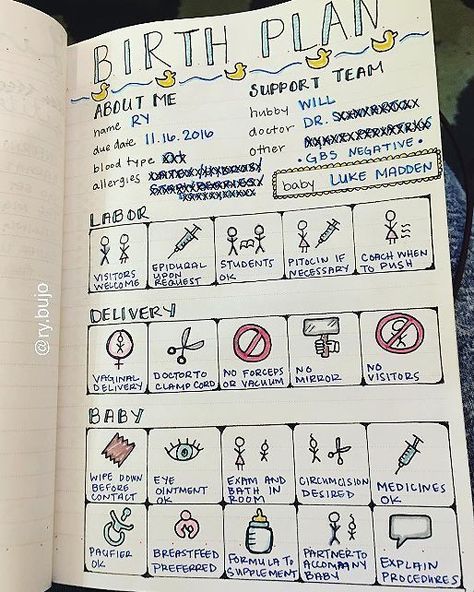 BIRTH PLAN
ABOUT ME
name RY
due date 11.16.2016
blood type
allergies
SUPPORT TEAM
hubby WILL
doctor DR.
other
• GBS NEGATIVE •
baby LUKE MADDEN
LABOR
VISITORS
WELCOME
EPIDURAL
UPON
REQUEST
STUDENTS
OK
PITOCIN IF
NECESSARY
COACH WHEN
TO PUSH
DELIVERY
VAGINAL
DELIVERY
DOCTOR TO
CLAMP CORD
NO FORCEPS
OR VACUUM
NO
MIRROR
NO
VISITORS
BABY
WIPE DOWN
BEFORE
CONTACT
EYE
OINTMENT
OK
EXAM AND
BATH IN
ROOM
CIRCUMCISION
DESIRED
MEDICINES
OK
PACIFIER
OK
BREASTFEED
PREFERRED
FORMULA TO
SUPPLEMENT
PARTNER TO
ACCOMPANY
BABY
EXPLAIN
PROCEDURES
@ry.bujo